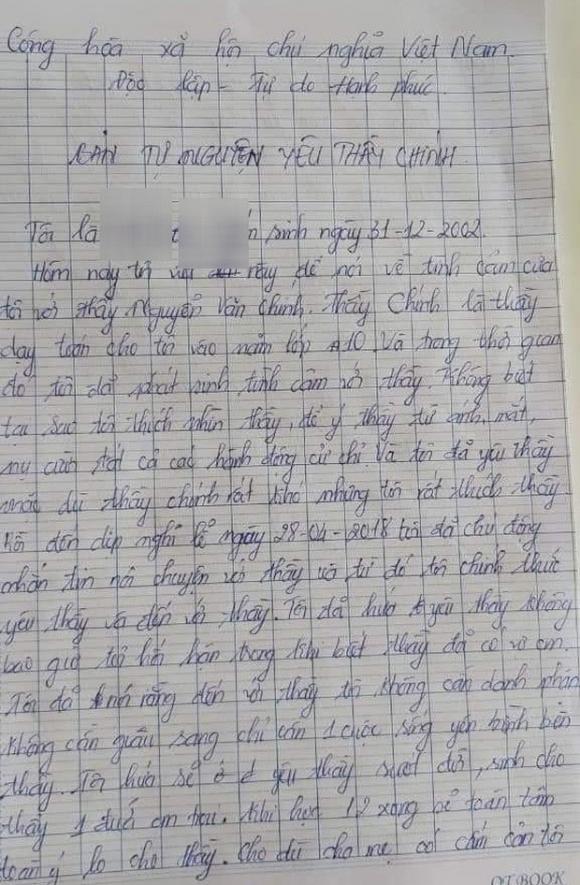 Cộng hòa xã hội chủ nghĩa Việt Nam.
Độc lập - Tự do Hạnh phúc.
BẢN TỰ NGUYỆN YÊU THẦY CHÍNH.
Tôi là n, sinh ngày 31-12-2002.
Hôm nay tôi này để nói về tình cảm của
tôi với thầy Nguyễn Văn Chính. Thầy Chính là thầy
dạy toán cho tôi vào năm lớp 10. Và trong thời gian
đó tôi đã phát sinh tình cảm với thầy. Không biết
tại sao tôi thích nhìn thầy, để ý thầy từ ánh mắt,
nụ cười tất cả các hành động cử chỉ. Và tôi đã yêu thầy
mặc dù thầy chính rất khó nhưng tôi rất thích thầy
đến dịp nghỉ lễ ngày 28-04-2018 tôi đã chủ động
nhắn tin nói chuyện với thầy và từ đó tôi chính thức
yêu thầy và đến với thầy. Tôi đã hứa yêu thầy không
bao giờ tôi hối hận trong khi biết thầy đã có vợ con.
Tôi đã nói rằng đến với thầy tôi không cần danh phận
không cần giàu sang chỉ cần 1 cuộc sống yên bình bên
thầy. Tôi hứa sẽ ở yêu thầy suốt đời, sinh cho
thầy 1 đứa con trai. Khi học 12 xong sẽ toàn tâm
toàn ý lo cho thầy. Cho dù cha mẹ có cấm cản tôi
DT BOOK